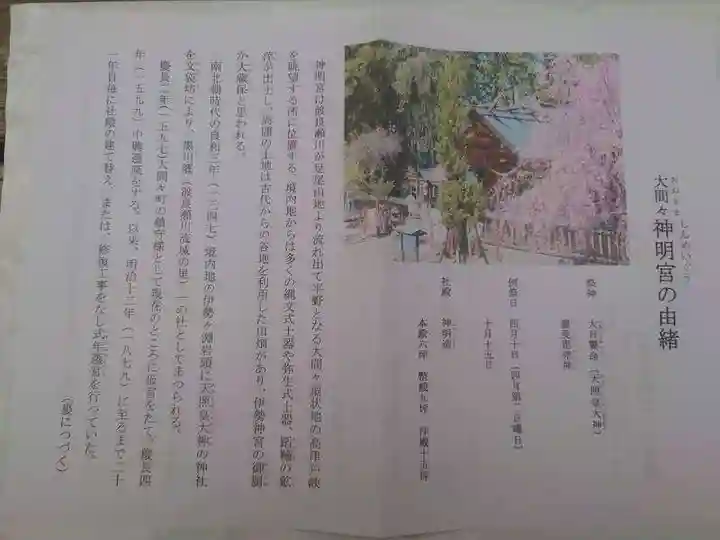 おおまま しんめいぐう
大間々 神明宮の由緒
祭神 大日孁命（天照皇大神）
豊受毘売神
例祭日 四月十日（四月第二日曜日）
十月十五日
社殿 神明造
本殿六坪 幣殿九坪 拝殿十五坪
神明宮は渡良瀬川が足尾山地より流れ出て平野となる大間々扇状地の高津戸峡
を眺望する所に位置する。境内地からは多くの縄文式土器や弥生式土器、埴輪の
等が出土し、周囲の土地は古代からの谷地を利用した山畑があり、伊勢神宮の御園
か大蔵保と思われる。
南北朝時代の貞和三年（一三四七）境内地の伊勢ヶ渕岩頭に天照皇大神の神社
を文袋坊により、黒川郷（渡良瀬川流域の里）一の社としてまつられる。
慶長二年（一五九七）大間々町の鎮守様として現在のところに仮宮をたて、慶長四
年（一五九九）中興遷座する。以来、明治十二年（一八七九）に至るまで二十
一年目毎に社殿の建て替え、または、修復工事をなし式年遷宮を行っていた。
（裏につづく）